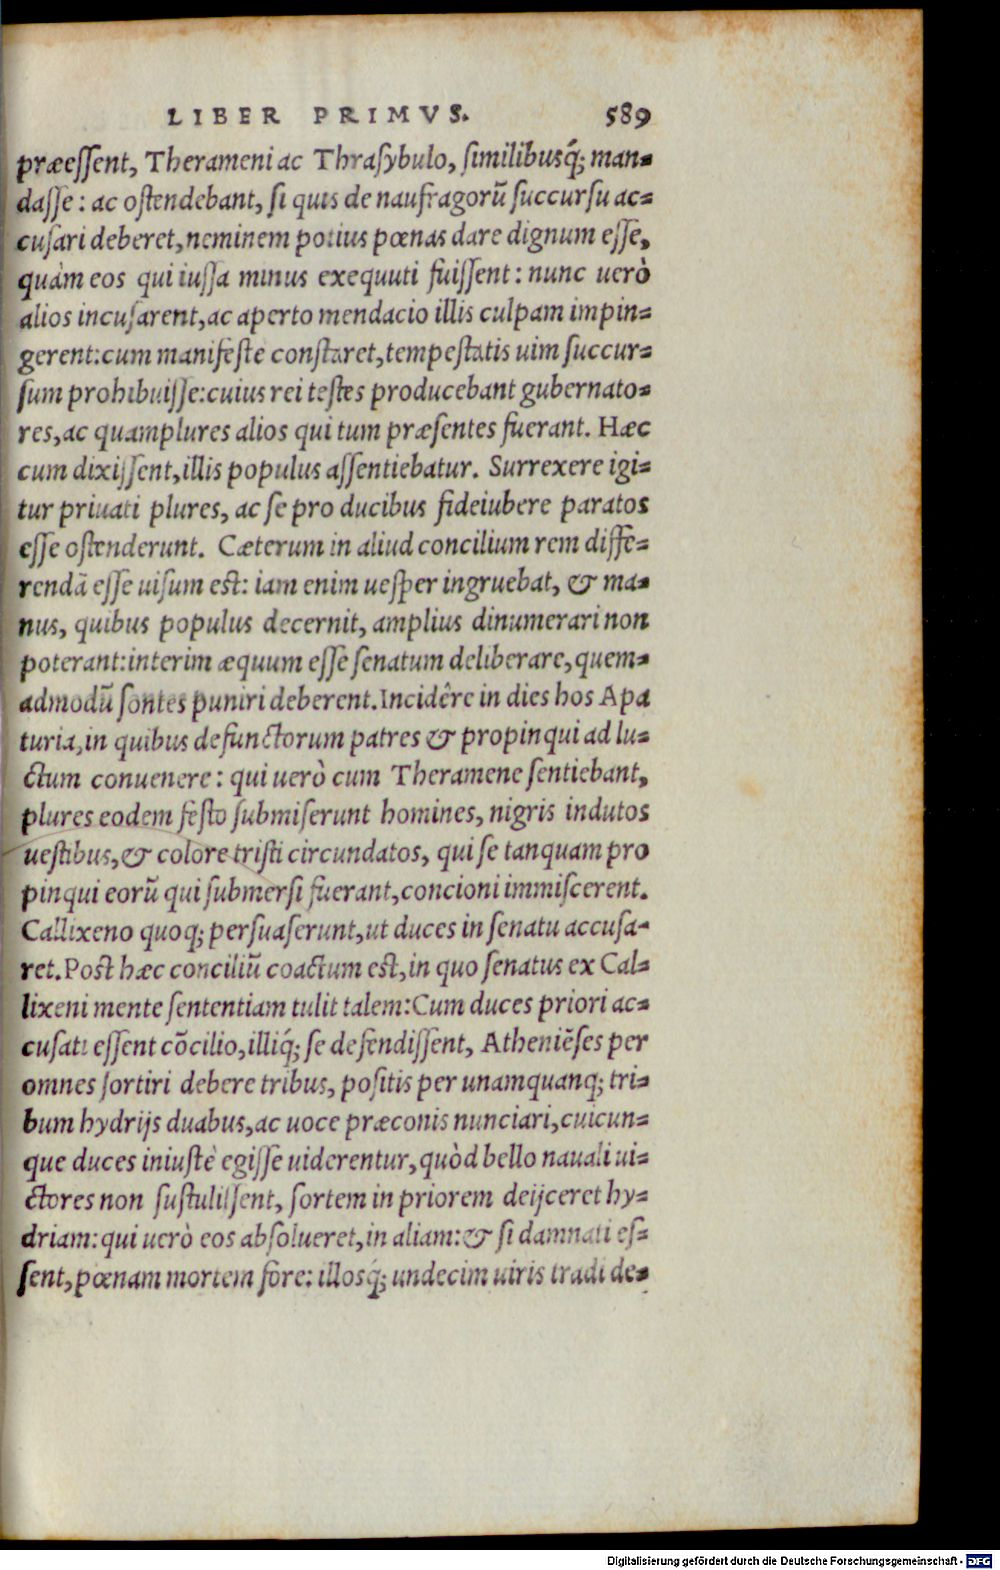 LIBER PRIMVS. 589
præessent, Therameni ac Thrasybulo, similibusq́; man-
dasse : ac ostendebant, si quis de naufragorũ succursu ac-
cusari deberet, neminem potius pœnas dare dignum esse,
quàm eos qui iussa minus exequuti fuissent : nunc uerò
alios incusarent, ac aperto mendacio illis culpam impin-
gerent: cum manifeste constaret, tempestatis uim succur-
sum prohibuisse: cuius rei testes producebant gubernato-
res, ac quamplures alios qui tum præsentes fuerant. Hæc
cum dixissent, illis populus assentiebatur. Surrexere igi-
tur priuati plures, ac se pro ducibus fideiubere paratos
esse ostenderunt. Cæterum in aliud concilium rem diffe-
rendã esse uisum est: iam enim uesper ingruebat, & ma-
nus, quibus populus decernit, amplius dinumerari non
poterant: interim æquum esse senatum deliberare, quem-
admodũ sontes puniri deberent. Incidêre in dies hos Apa
turia, in quibus defunctorum patres & propinqui ad lu-
ctum conuenere : qui uerò cum Theramene sentiebant,
plures eodem festo submiserunt homines, nigris indutos
uestibus, & colore tristi circundatos, qui se tanquam pro
pinqui eorũ qui submersi fuerant, concioni immiscerent.
Callixeno quoq; persuaserunt, ut duces in senatu accusa-
ret. Post hæc conciliũ coactum est, in quo senatus ex Cal-
lixeni mente sententiam tulit talem: Cum duces priori ac-
cusati essent cõcilio, illiq́; se defendissent, Atheniẽses per
omnes sortiri debere tribus, positis per unamquanq; tri-
bum hydrijs duabus, ac uoce præconis nunciari, cuicun-
que duces iniustè egisse uiderentur, quòd bello nauali ui-
ctores non sustulissent, sortem in priorem deijceret hy-
driam: qui uerò eos absolueret, in aliam: & si damnati es-
sent, pœnam mortem fore: illosq́; undecim uiris tradi de-
Digitalisierung gefördert durch die Deutsche Forschungsgemeinschaft - DFG